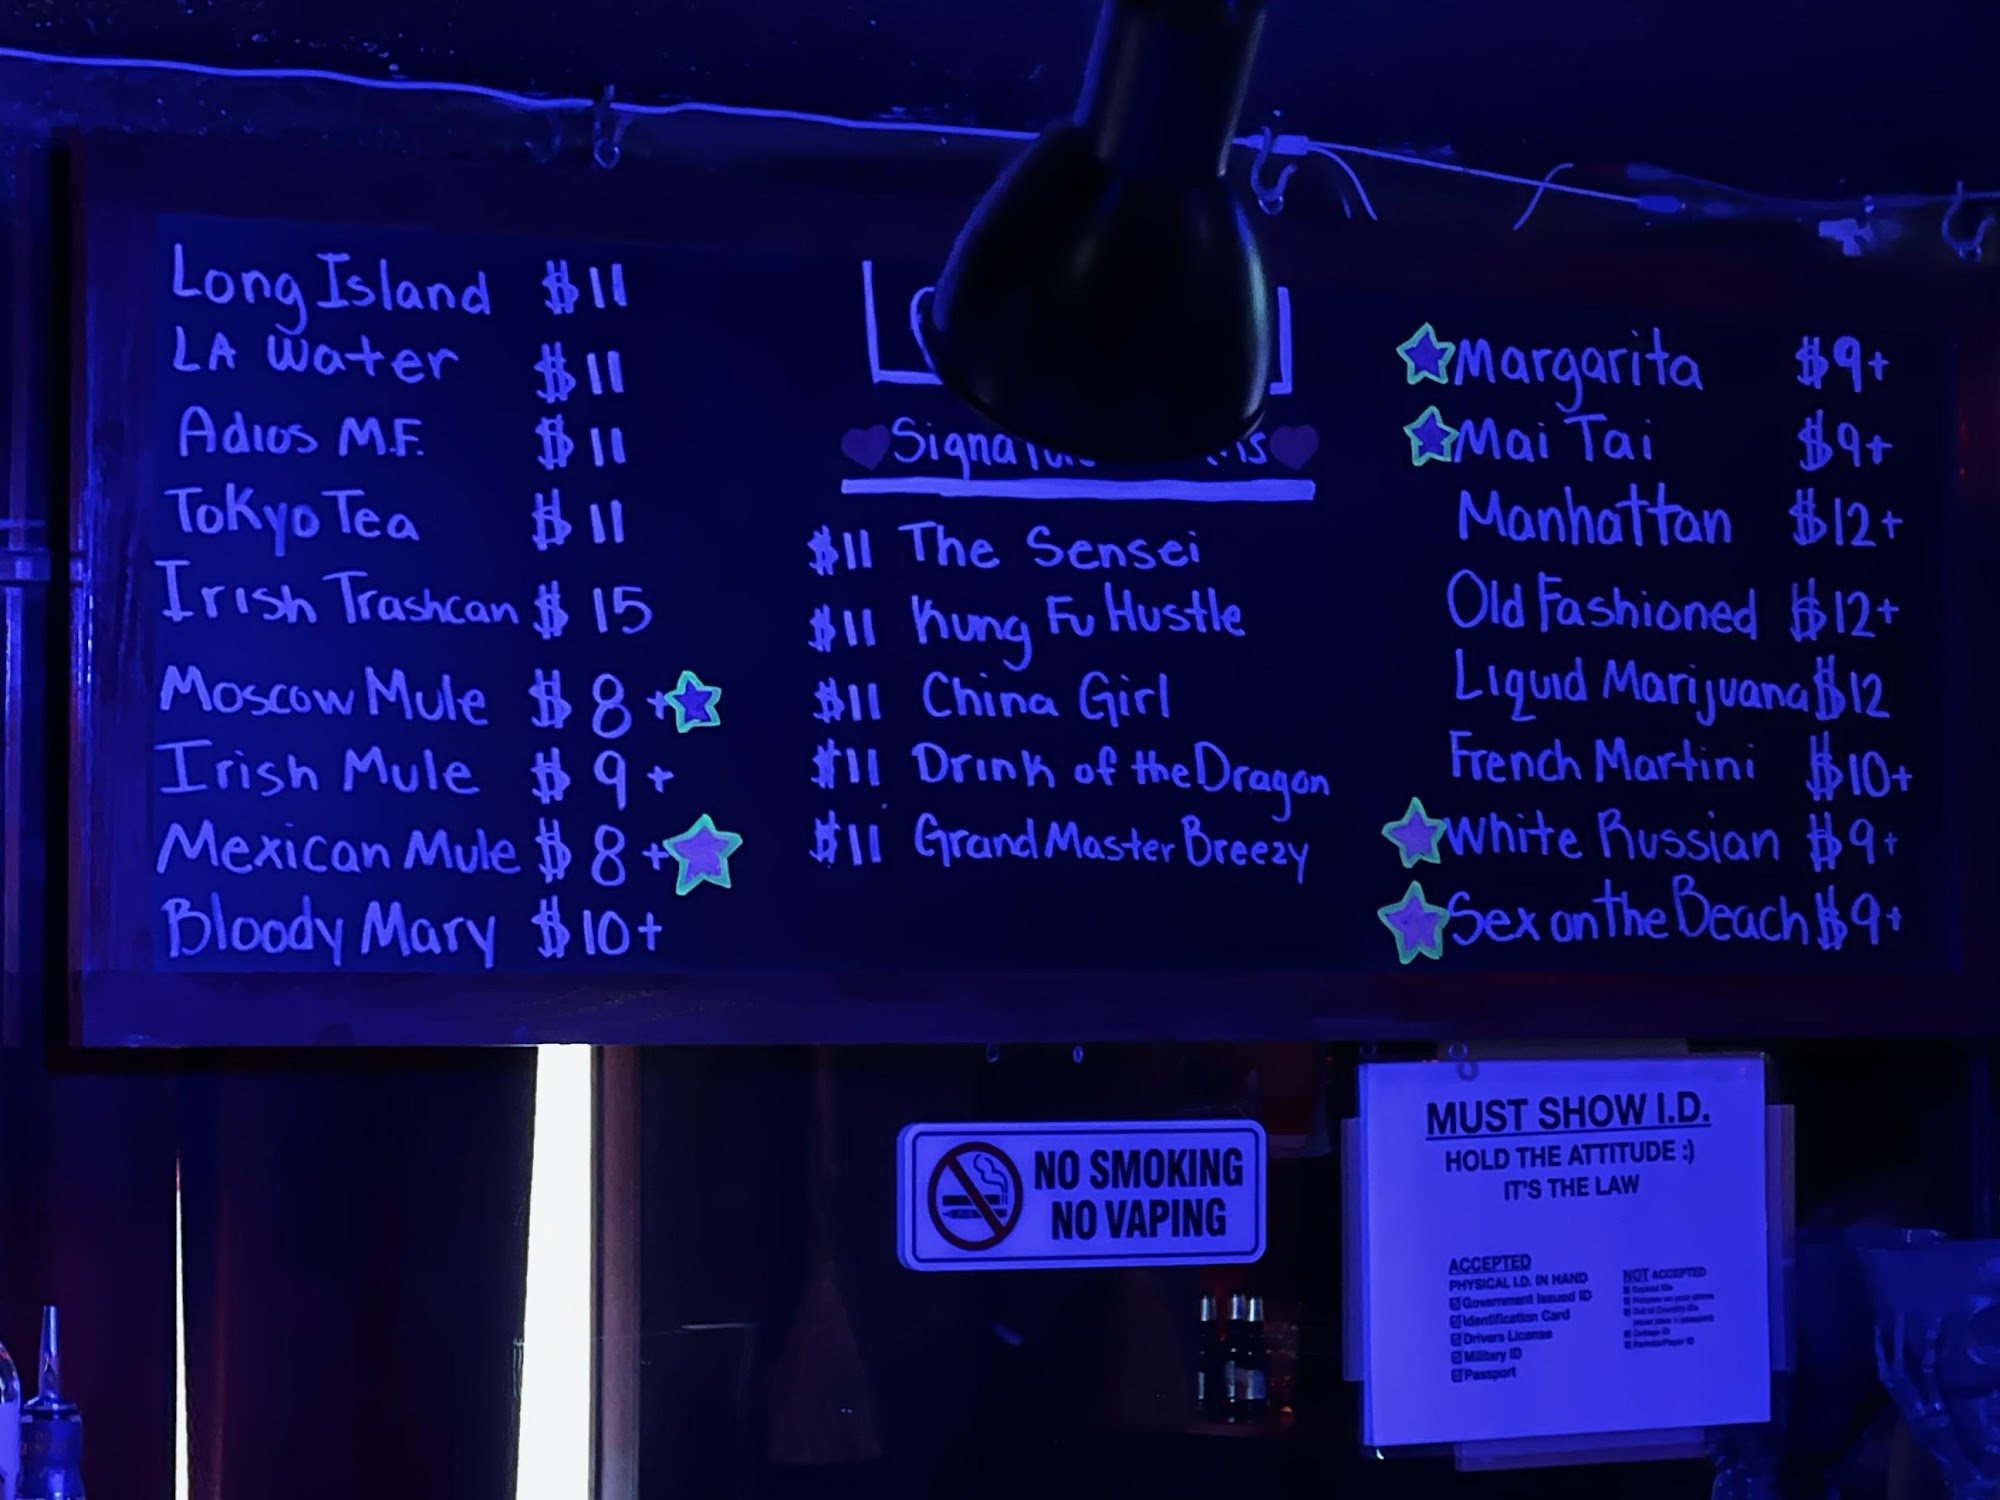 Long Island $11
LA Water $11
Adios M.F. $11
Tokyo Tea $11
Irish Trashcan $15
Moscow Mule $8+
Irish Mule $9+
Mexican Mule $8+
Bloody Mary $10+
$11 The Sensei
$11 Kung Fu Hustle
$11 China Girl
$11 Drink of the Dragon
$11 Grand Master Breezy
Margarita $9+
Mai Tai $9+
Manhattan $12+
Old Fashioned $12+
Liquid Marijuana $12
French Martini $10+
White Russian $9+
Sex on the Beach $9+
NO SMOKING
NO VAPING
MUST SHOW I.D.
HOLD THE ATTITUDE :)
IT'S THE LAW
ACCEPTED
PHYSICAL I.D. IN HAND
Government Issued ID
Identification Card
Drivers License
Military ID
Passport
NOT ACCEPTED
Expired IDs
Pictures on your phone
Out of Country IDs
College ID